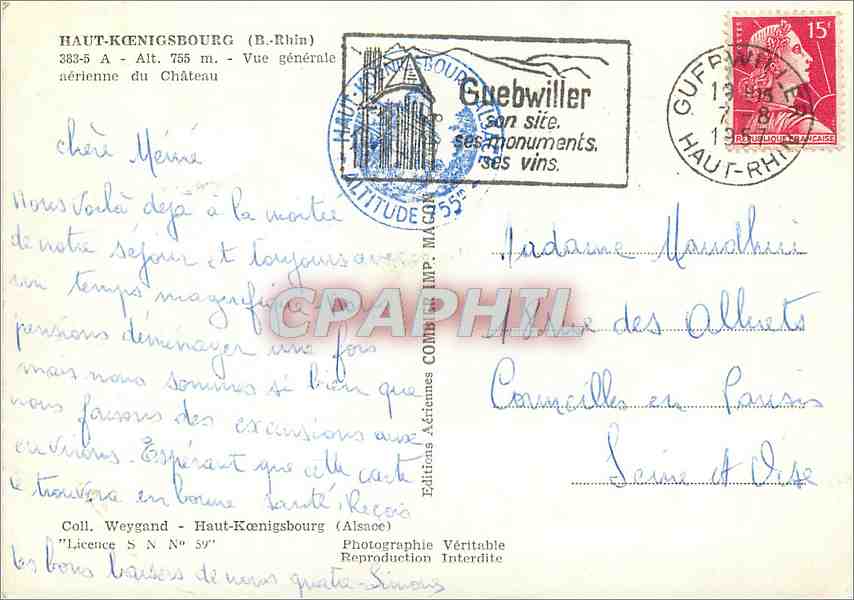 HAUT-KŒNIGSBOURG (B.-Rhin)
383-5 A - Alt. 755 m. - Vue générale
aérienne du Château
HAUT-KŒNIGSBOURG (ALSACE)
ALTITUDE 755m
Guebwiller
son site.
ses monuments.
ses vins.
GUEBWILLER
HAUT-RHIN
POSTES
15F
REPUBLIQUE FRANÇAISE
chère Mémé
Nous voilà déjà à la moitié
de notre séjour et toujours avec
un temps magnifique. Nous
pensions déménager une fois
mais nous sommes si bien que
nous faisons des excursions aux
environs. Espérant que cette carte
te trouvera en bonne santé, Reçois
les bons baisers de nous quatre. Simone
Editions Aériennes COMBIER IMP. MACON
CPAPHIL
Madame
rue des Alluets
Cormeilles en Parisis
Seine et Oise
Coll. Weygand - Haut-Kœnigsbourg (Alsace)
"Licence S N Nº 59"
Photographie Véritable
Reproduction Interdite